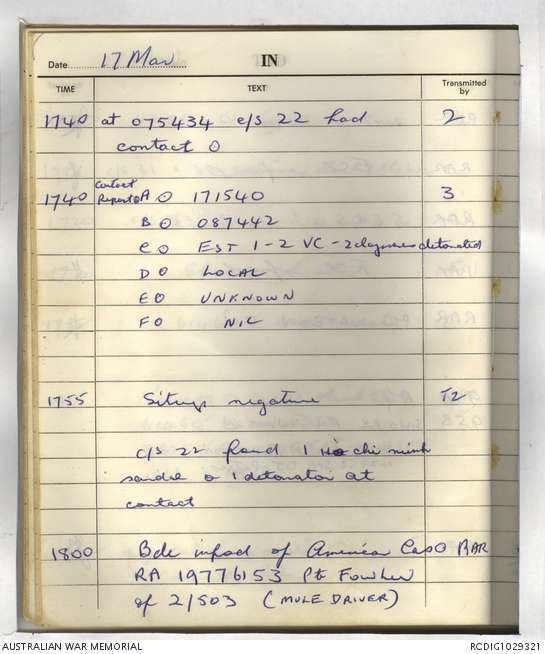 Date 17 Mar IN
TIME TEXT Transmitted by
1740 at 075434 c/s 22 had 2
contact O
1740 Contact Report A O 171540 3
B O 087442
C O EST 1-2 VC - 2 claymores detonated
D O LOCAL
E O UNKNOWN
F O NIL
1755 Sitreps negative T2
c/s 22 found 1 Ho chi minh
sandle o 1 detonator at
contact
1800 Bde infod of America Cas O RAR
RA 19776153 Pte
of 2/503 (MULE DRIVER)
AUSTRALIAN WAR MEMORIAL RCDIG1029321